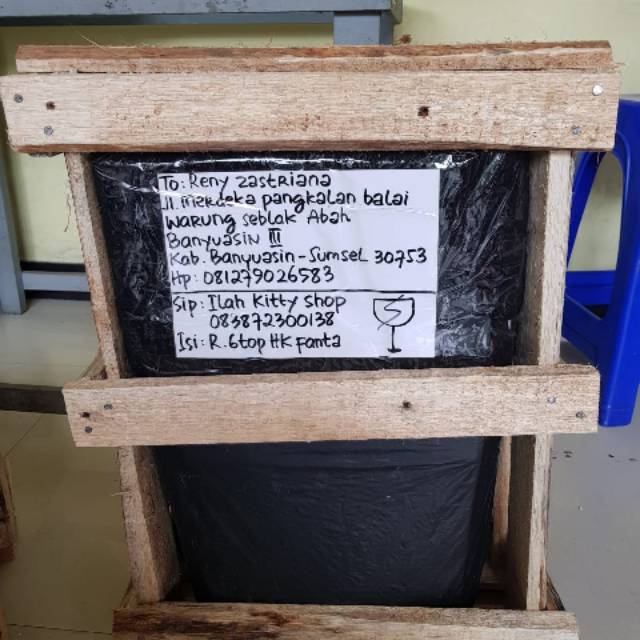 To: Reny Zastriana
Jl. Merdeka pangkalan balai
Warung seblak Abah
Banyuasin III
Kab. Banyuasin - Sumsel 30753
Hp: 081279026583
Sip: Ilah Kitty shop
083872300138
Isi: R. 6top HK fanta